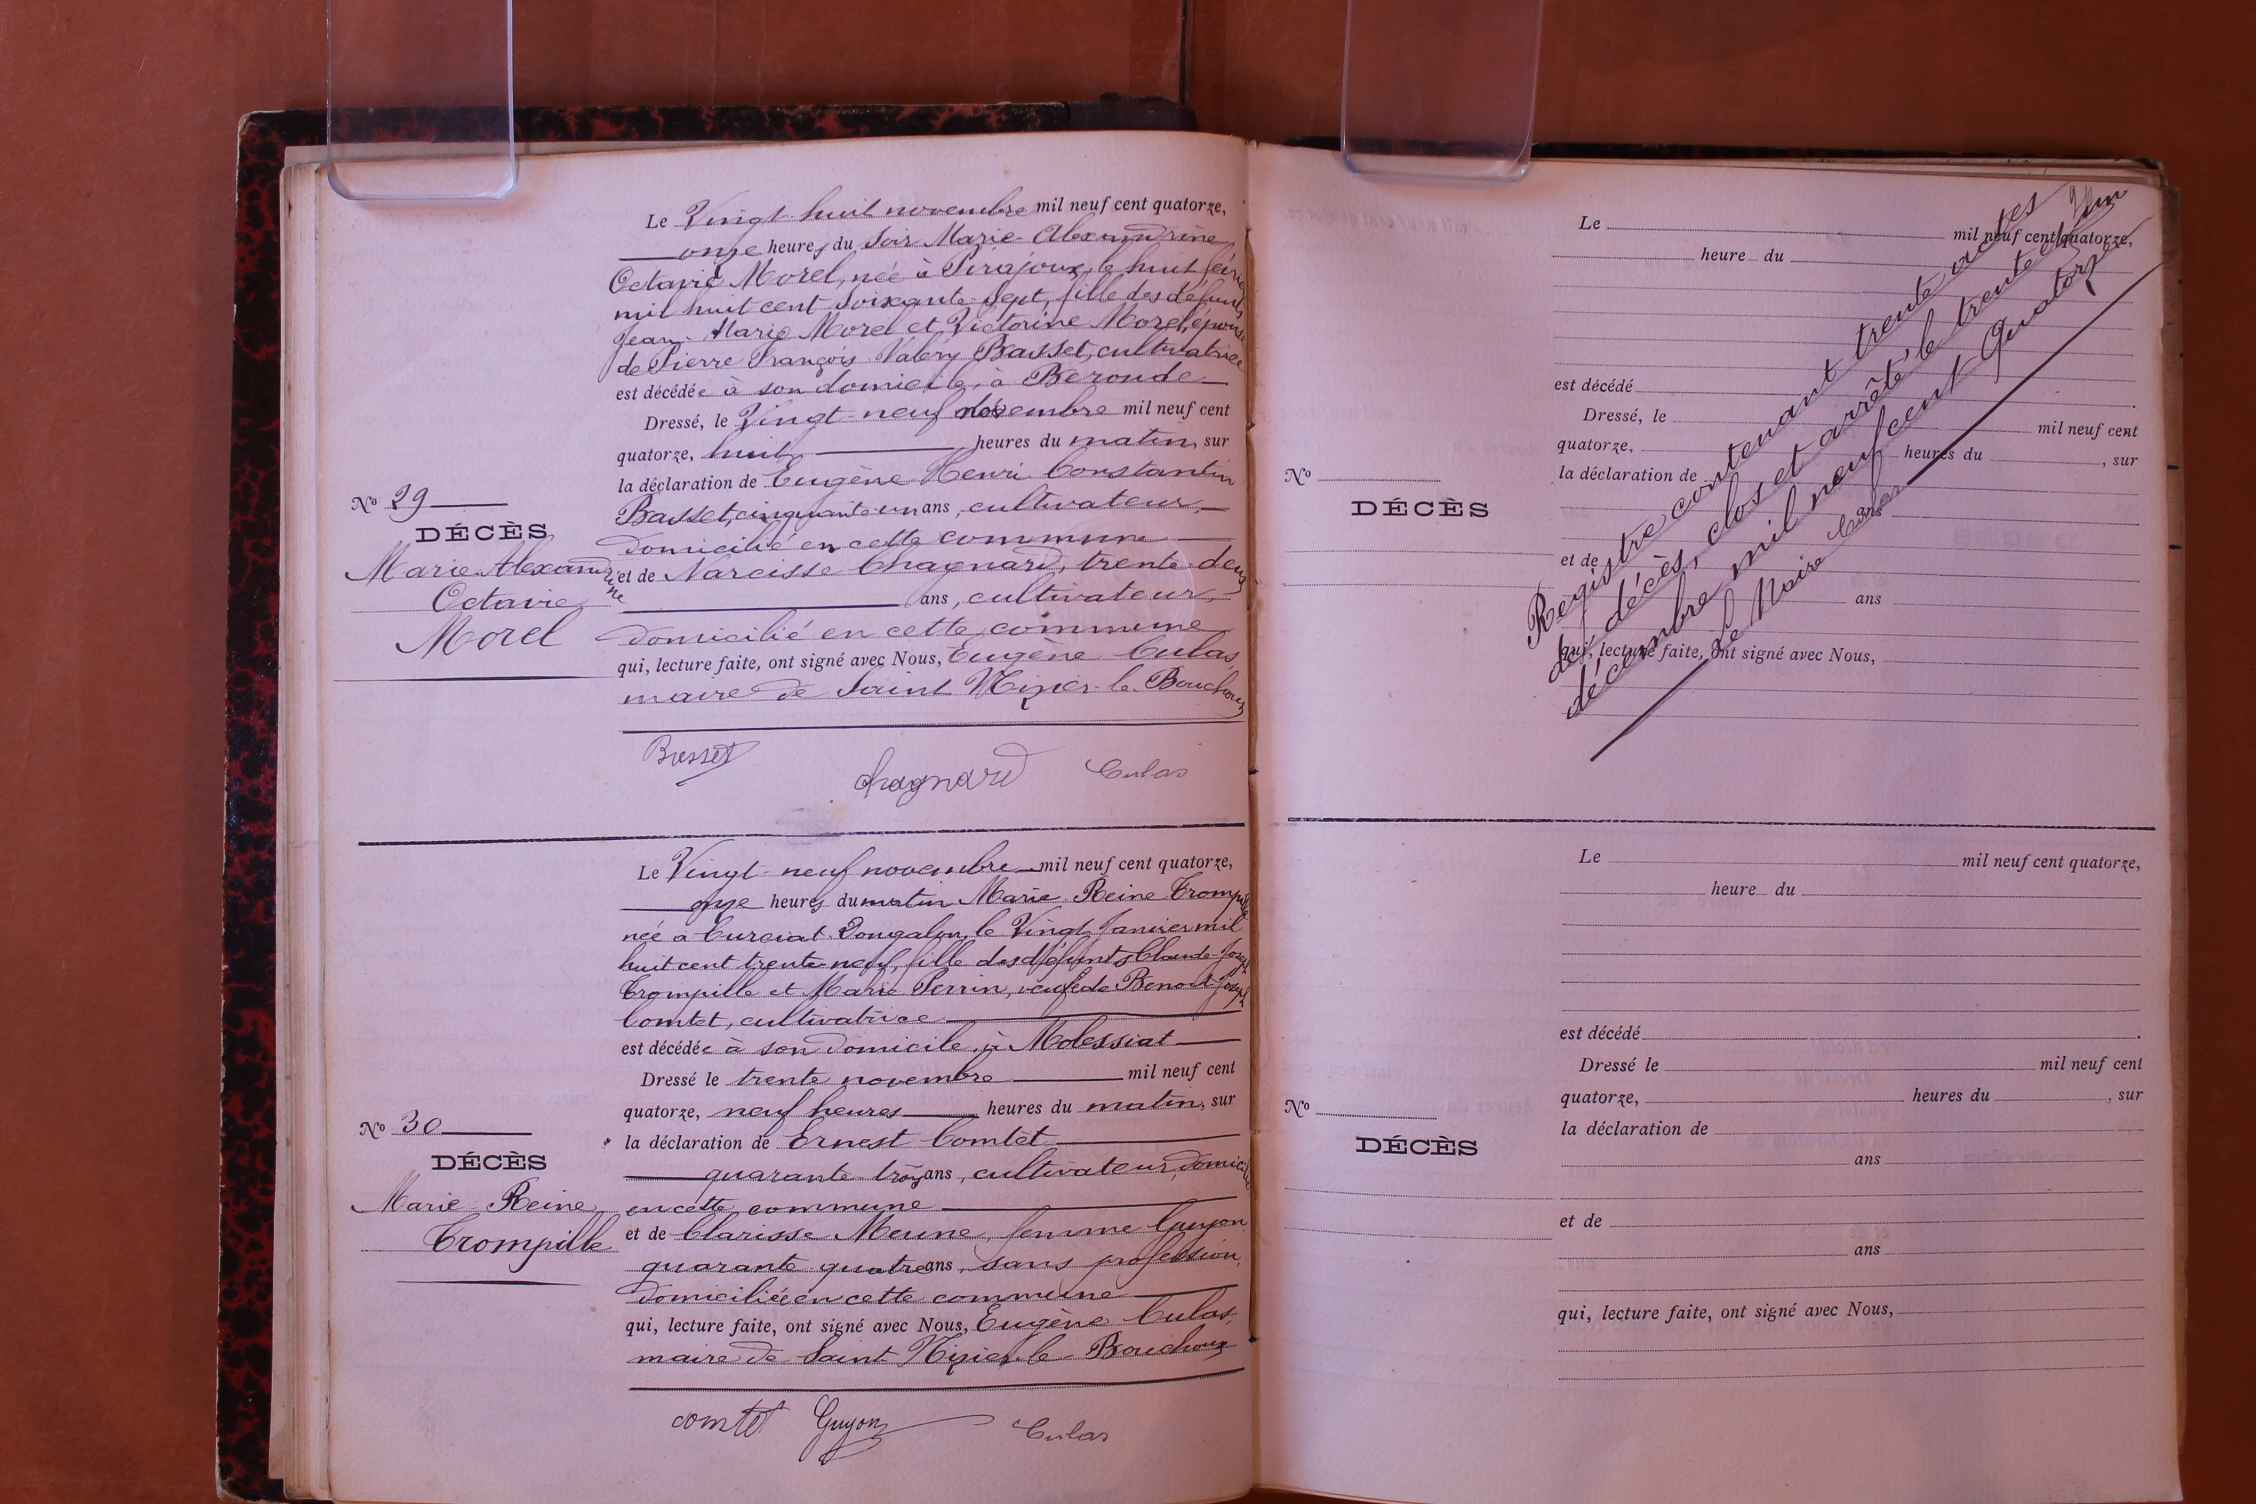 Le Vingt-huit novembre mil neuf cent quatorze,
onze heures du soir Marie-Alexandrine
Octavie Morel, née à Pirajoux, le huit
mil huit cent soixante-sept, fille des défunts
Jean-Marie Morel et Victorine Morel, épouse
de Pierre François Valéry Basset, cultivatrice
est décédée à son domicile, à Beroude
Dressé, le Vingt-neuf novembre mil neuf cent
quatorze, huit heures du matin, sur
la déclaration de Eugène Henri Constantin
Basset, cinquante-un ans, cultivateur,
domicilié en cette commune
No 29
DÉCÈS
Marie-Alexandrine
Octavie
Morel
et de Narcisse Chagnard, trente-deux
ans, cultivateur,
domicilié en cette commune
qui, lecture faite, ont signé avec Nous, Eugène Culas,
maire de Saint Nizier-le-Bouchoux
Basset
Chagnard
Culas
Le Vingt-neuf novembre mil neuf cent quatorze,
onze heures du matin Marie-Reine Trompille
née à Curciat-Dongalon, le Vingt Janvier mil
huit cent trente-neuf, fille des défunts Claude-Joseph
Trompille et Marie Perrin, veuve de Benoit-Joseph
Comtet, cultivatrice
est décédée à son domicile, à Molessiat
Dressé le trente novembre mil neuf cent
quatorze, neuf heures heures du matin, sur
la déclaration de Ernest Comtet
quarante-trois ans, cultivateur, domicilié
en cette commune
No 30
DÉCÈS
Marie-Reine
Trompille
et de Clarisse Meune, femme Guyon
quarante-quatre ans, sans profession,
domiciliée en cette commune
qui, lecture faite, ont signé avec Nous, Eugène Culas,
maire de Saint-Nizier-le-Bouchoux
comtet
Guyon
Culas
Le mil neuf cent quatorze,
heure du
est décédé
Dressé, le mil neuf cent
quatorze, heures du , sur
la déclaration de
ans
No
DÉCÈS
et de
ans
qui, lecture faite, ont signé avec Nous,
Registre contenant trente actes
de décès, clos et arrêté le trente et un
décembre mil neuf cent quatorze
Le Maire Culas
Le mil neuf cent quatorze,
heure du
est décédé
Dressé le mil neuf cent
quatorze, heures du , sur
la déclaration de
ans
No
DÉCÈS
et de
ans
qui, lecture faite, ont signé avec Nous,